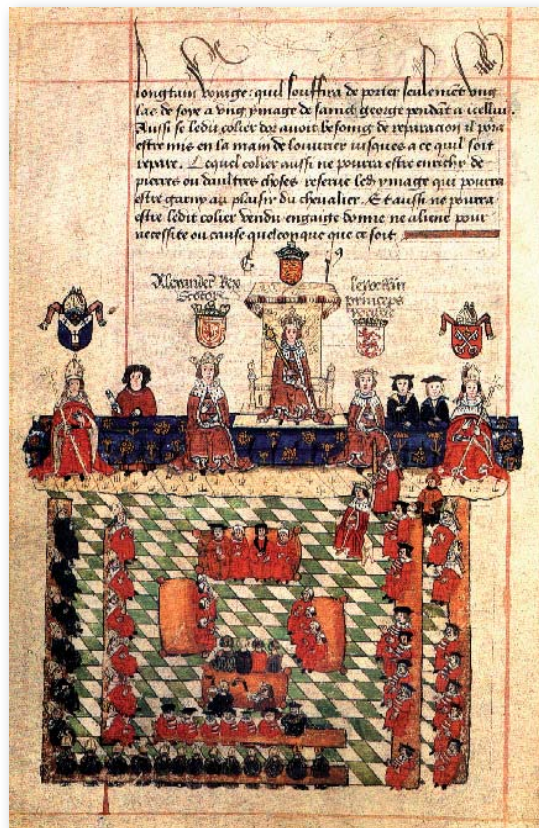 longtain voyage: quil souffira de porter seulemēt vng
las de soye a vng ymage de sainct george pendāt a icellui.
Aussi se ledit colier dor auoit besoing de reparacion il pora
estre mis en la main de louurier iusques a ce quil soit
repare. Lequel colier aussi ne pourra estre enrichi de
pierres ou daultres choses reserue led ymage qui pourra
estre garny au plaisir du cheualier. Et aussi ne pourra
estre ledit colier vendu engaige donne ne aliene pour
necessite ou cause quelconque que ce soit
Alexander Rex
princeps